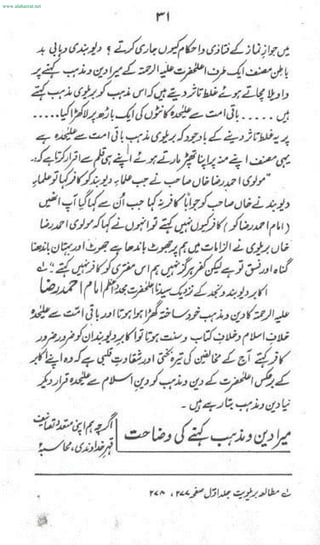 www.alahazrat.net
۳۱
میں جوازِ نماز کے فتاویٰ و احکام کیوں جاری کرتے؟ دیوبندی وہابی بد
باطن مصنف ایک طرف اعلیٰحضرت علیہ الرحمۃ کے میرا دین و مذہب کہنے پر
واویلا مچاتے ہوئے غلط تاثر دیتے ہیں کہ اس مذہب کو بریلوی مذہب کہتے
ہیں ..... باقی امت سے علیحدہ کانٹوں کی ایک باڑھ پر لاکھڑا کیا ....
پر یہ غلط تاثر دینے کے باوجود کہ بریلوی مذہب باقی امت سے علیحدہ ہے
یہی مصنف اپنے منہ پر اپنا تھپڑ مارتے ہوئے اپنے ہی قلم سے اقرار کرتا ہے کہ:
"مولوی احمد رضا خاں صاحب نے جب علماء دیوبند کو کافر کہا تو علماءِ
دیوبند نے خاں صاحب کو جواباً کافر نہ کہا جب اُن سے کہا گیا آپ انہیں
(امام احمد رضا کو) کافر کیوں نہیں کہتے تو انہوں نے کہا کہ مولوی احمد رضا
خاں بریلوی نے الزامات میں ہم پر جھوٹ باندھا ہے جھوٹ اور بہتان باندھنا
گناہ اور فسق تو ہے لیکن کفر ہرگز نہیں ہم اس مفتری کو کافر نہیں کہتے"
اکابر دیوبند و نجد کے نزدیک سیدنا اعلیٰحضرت مجدد اعظم امام احمد رضا
علیہ الرحمۃ کا دین و مذہب خود ساختہ گھڑا ہوا ہوتا اور باقی امت سے علیحدہ
خلافِ اسلام و خلافِ کتاب و سنت ہوتا تو اکابر دیوبند ان کو ضرور ضرور
کافر کہتے آج کے مخالفین کی تیرہ بختی اور شقاوتِ قلبی ہے کہ وہ اپنے اکابر
کے برعکس اعلیٰحضرت کے دین و مذہب کو دینِ اسلام سے علیحدہ قرار دیکر
نیا دین و مذہب بتا رہے ہیں۔
میرا دین و مذہب کہنے کی وضاحت
اگرچہ ہم اپنی متعدد تصانیف
قہر خداوندی، محاسبۂ
مطالعہ بریلویت جلد اوّل صفحہ ۲۷۷، ۲۷۸